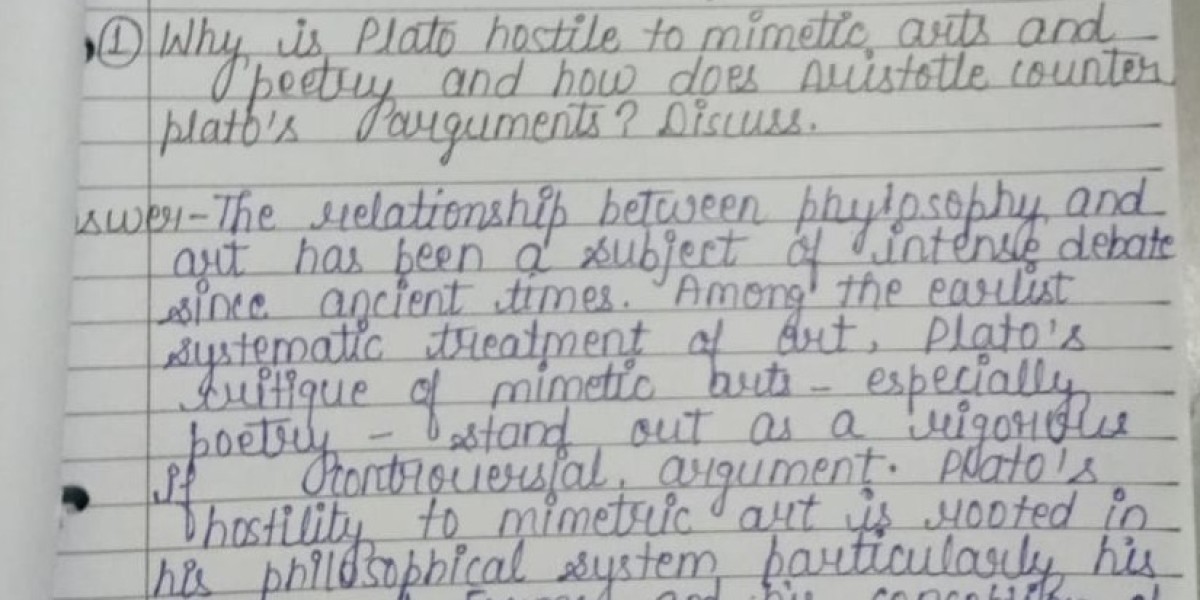 ① Why is Plato hostile to mimetic arts and
poetry and how does Aristotle counter
plato's arguments? Discuss.
swer - The relationship between phylosophy and
art has been a subject of intense debate
since ancient times. Among the earlist
systematic treatment of art, Plato's
critique of mimetic arts - especially
poetry - stand out as a rigorious
if controversial, argument. Plato's
hostility to mimetric art is rooted in
his philosophical system particularly his
and his conception of